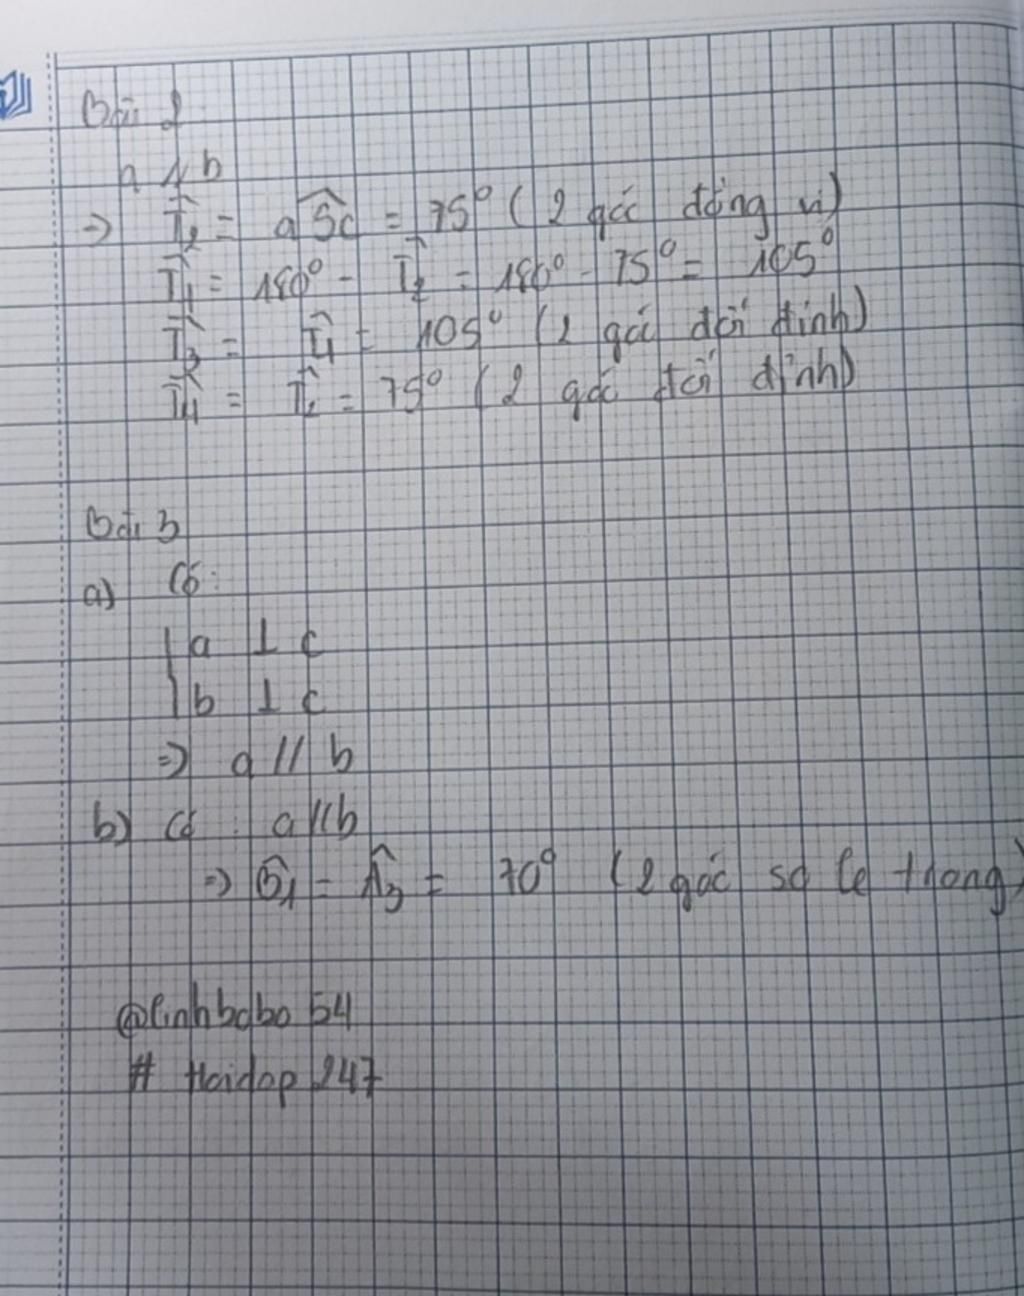 Bài 2
a // b
=> T̂₂ = aŜc = 75° (2 góc đồng vị)
T̂₁ = 180° - T̂₂ = 180° - 75° = 105°
T̂₃ = T̂₁ = 105° (2 góc đối đỉnh)
T̂₄ = T̂₂ = 75° (2 góc đối đỉnh)
Bài 3
a) Có:
a ⊥ c
b ⊥ c
=> a // b
b) Có: a // b
=> B̂₁ = Â₃ = 70° (2 góc so le trong)
@linhbobo 54
# Hoidap 247